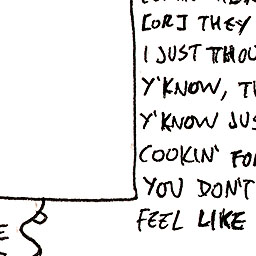 [OR] THEY
I JUST THOU
Y'KNOW, TH
Y'KNOW JUS
COOKIN' FO
YOU DON'T
FEEL LIKE
E